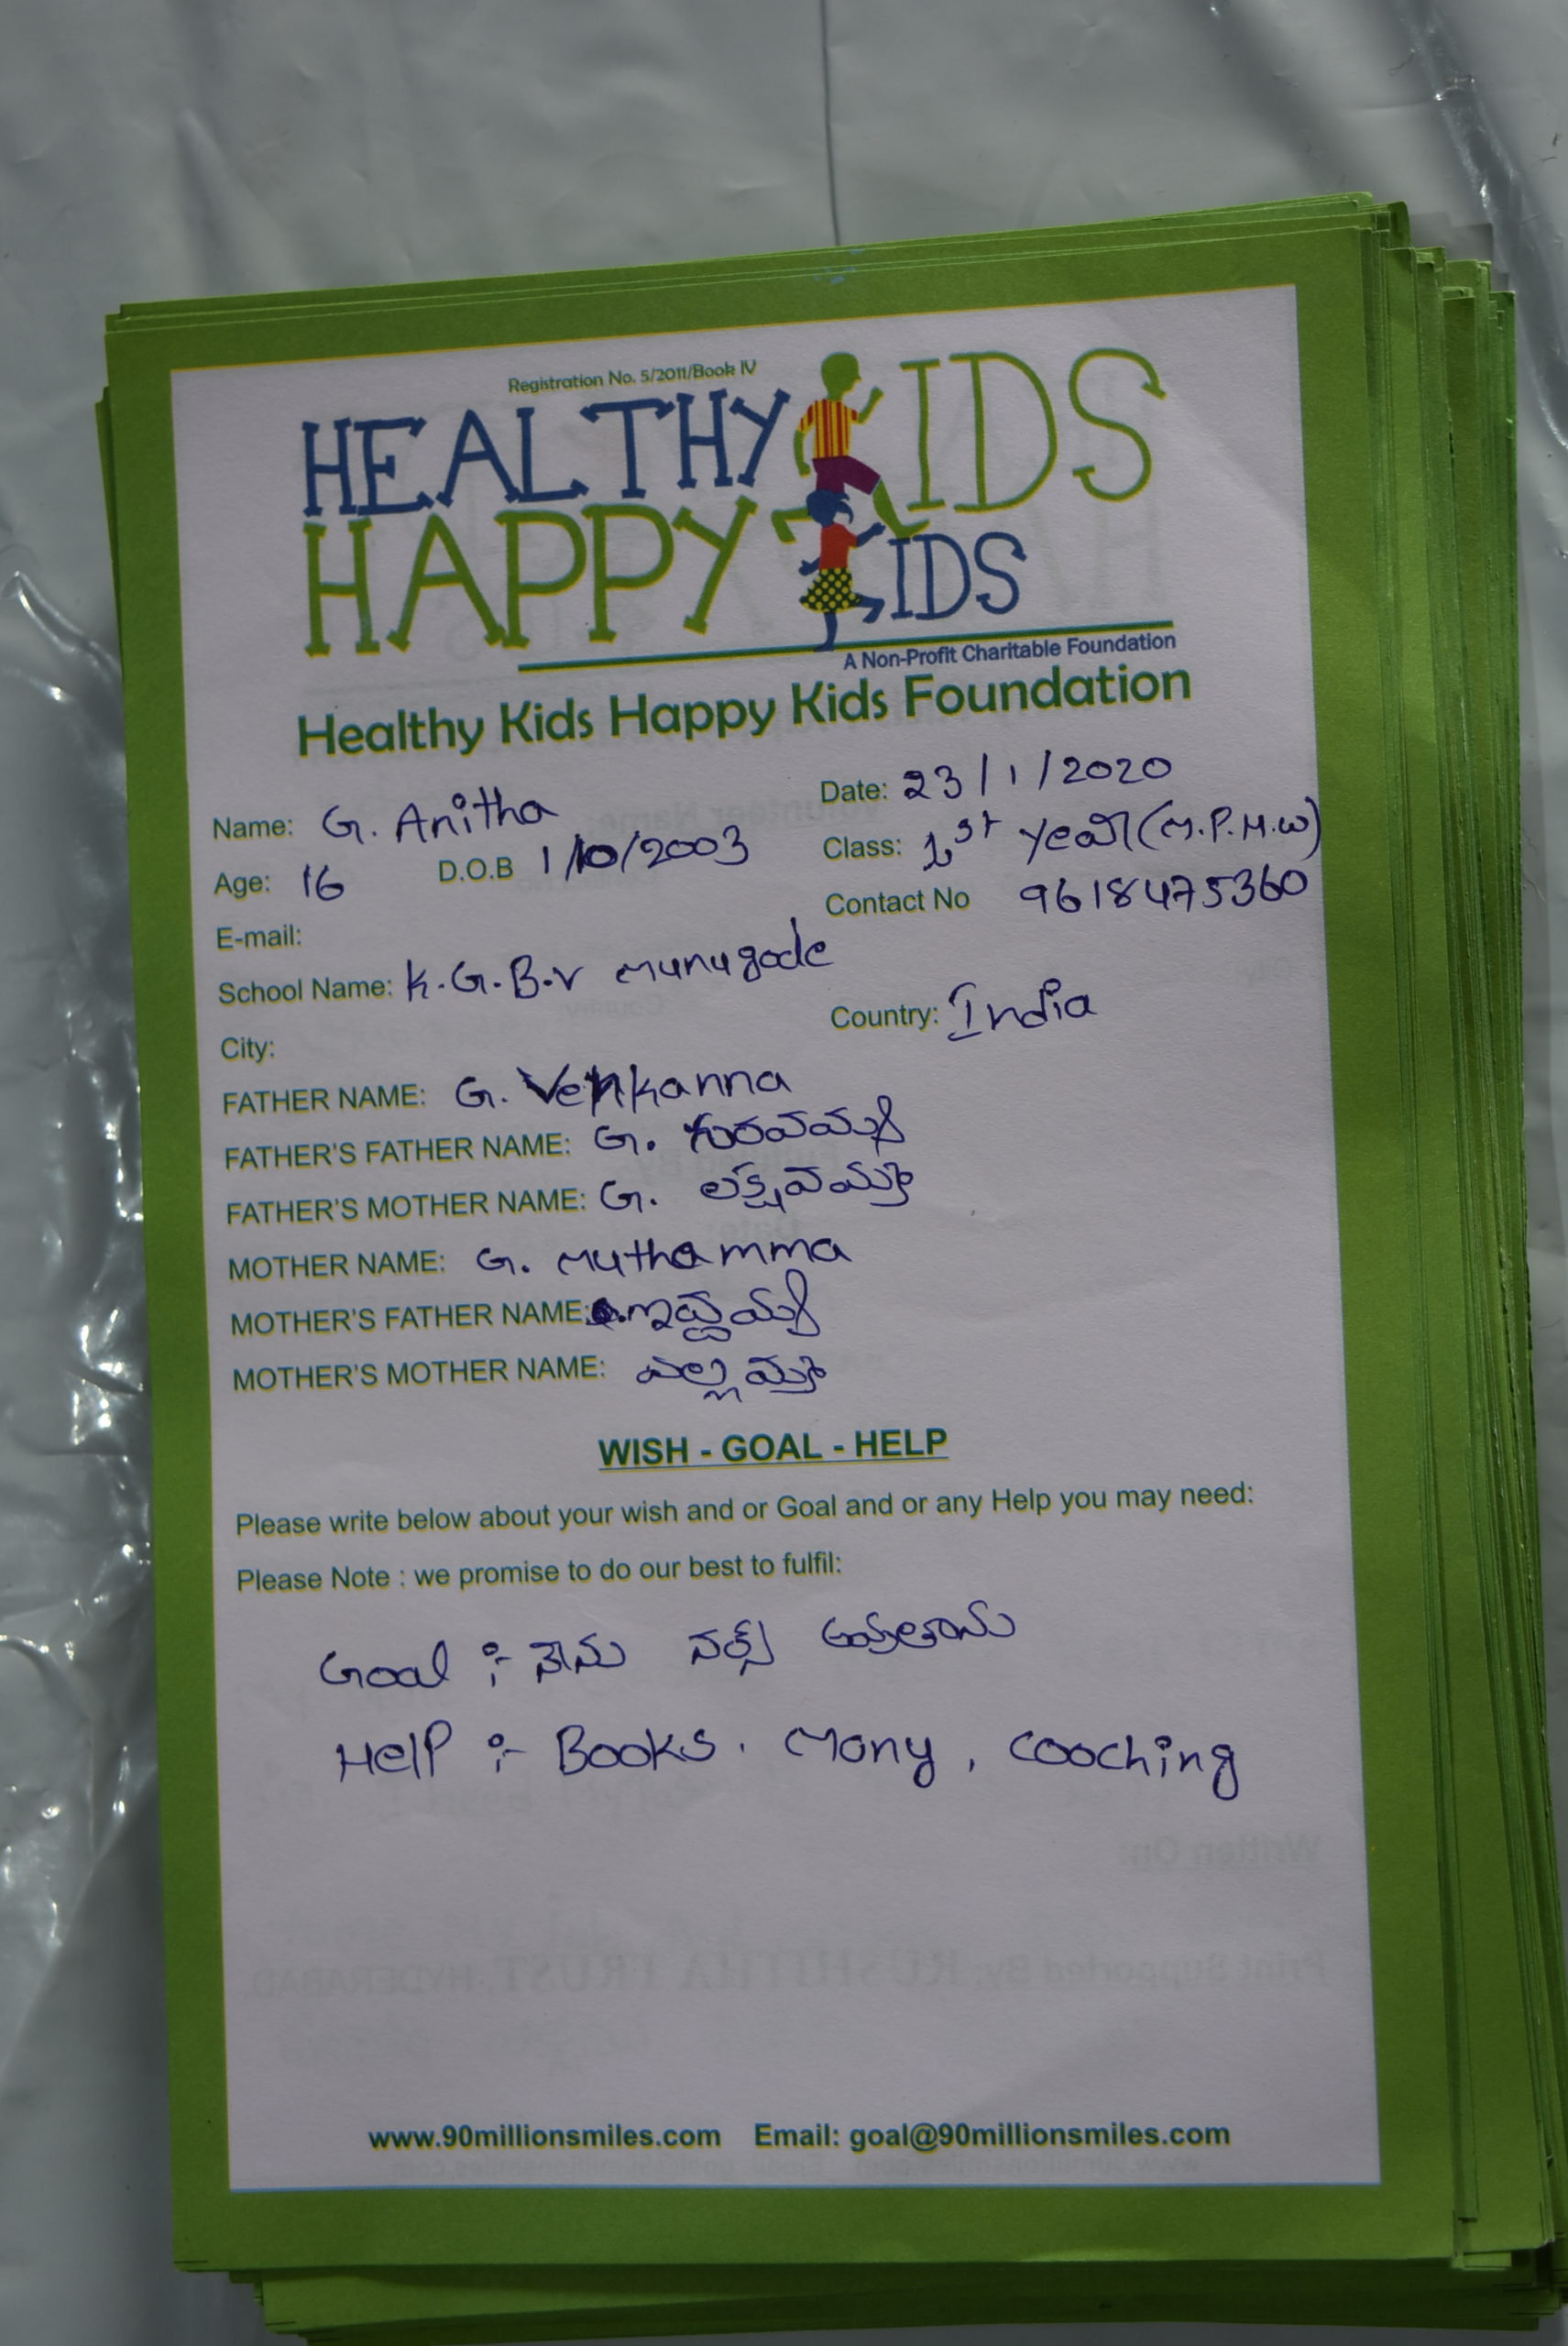 Registration No. 5/2011/Book IV
HEALTHY KIDS
HAPPY KIDS
A Non-Profit Charitable Foundation
Healthy Kids Happy Kids Foundation
Name: G. Anitha Date: 23/1/2020
Age: 16 D.O.B 1/10/2003 Class: 1st year (M.P.H.W)
E-mail: Contact No 9618475360
School Name: K.G.B.V Munugode
City: Country: India
FATHER NAME: G. Venkanna
FATHER'S FATHER NAME: G. గురవయ్య
FATHER'S MOTHER NAME: G. లక్ష్మవమ్మ
MOTHER NAME: G. Muthamma
MOTHER'S FATHER NAME:
MOTHER'S MOTHER NAME: ఎల్లమ్మ
WISH - GOAL - HELP
Please write below about your wish and or Goal and or any Help you may need:
Please Note : we promise to do our best to fulfil:
Goal :- నేను నర్స్ అవుతాను
Help :- Books. Mony, Cooching
www.90millionsmiles.com Email: goal@90millionsmiles.com